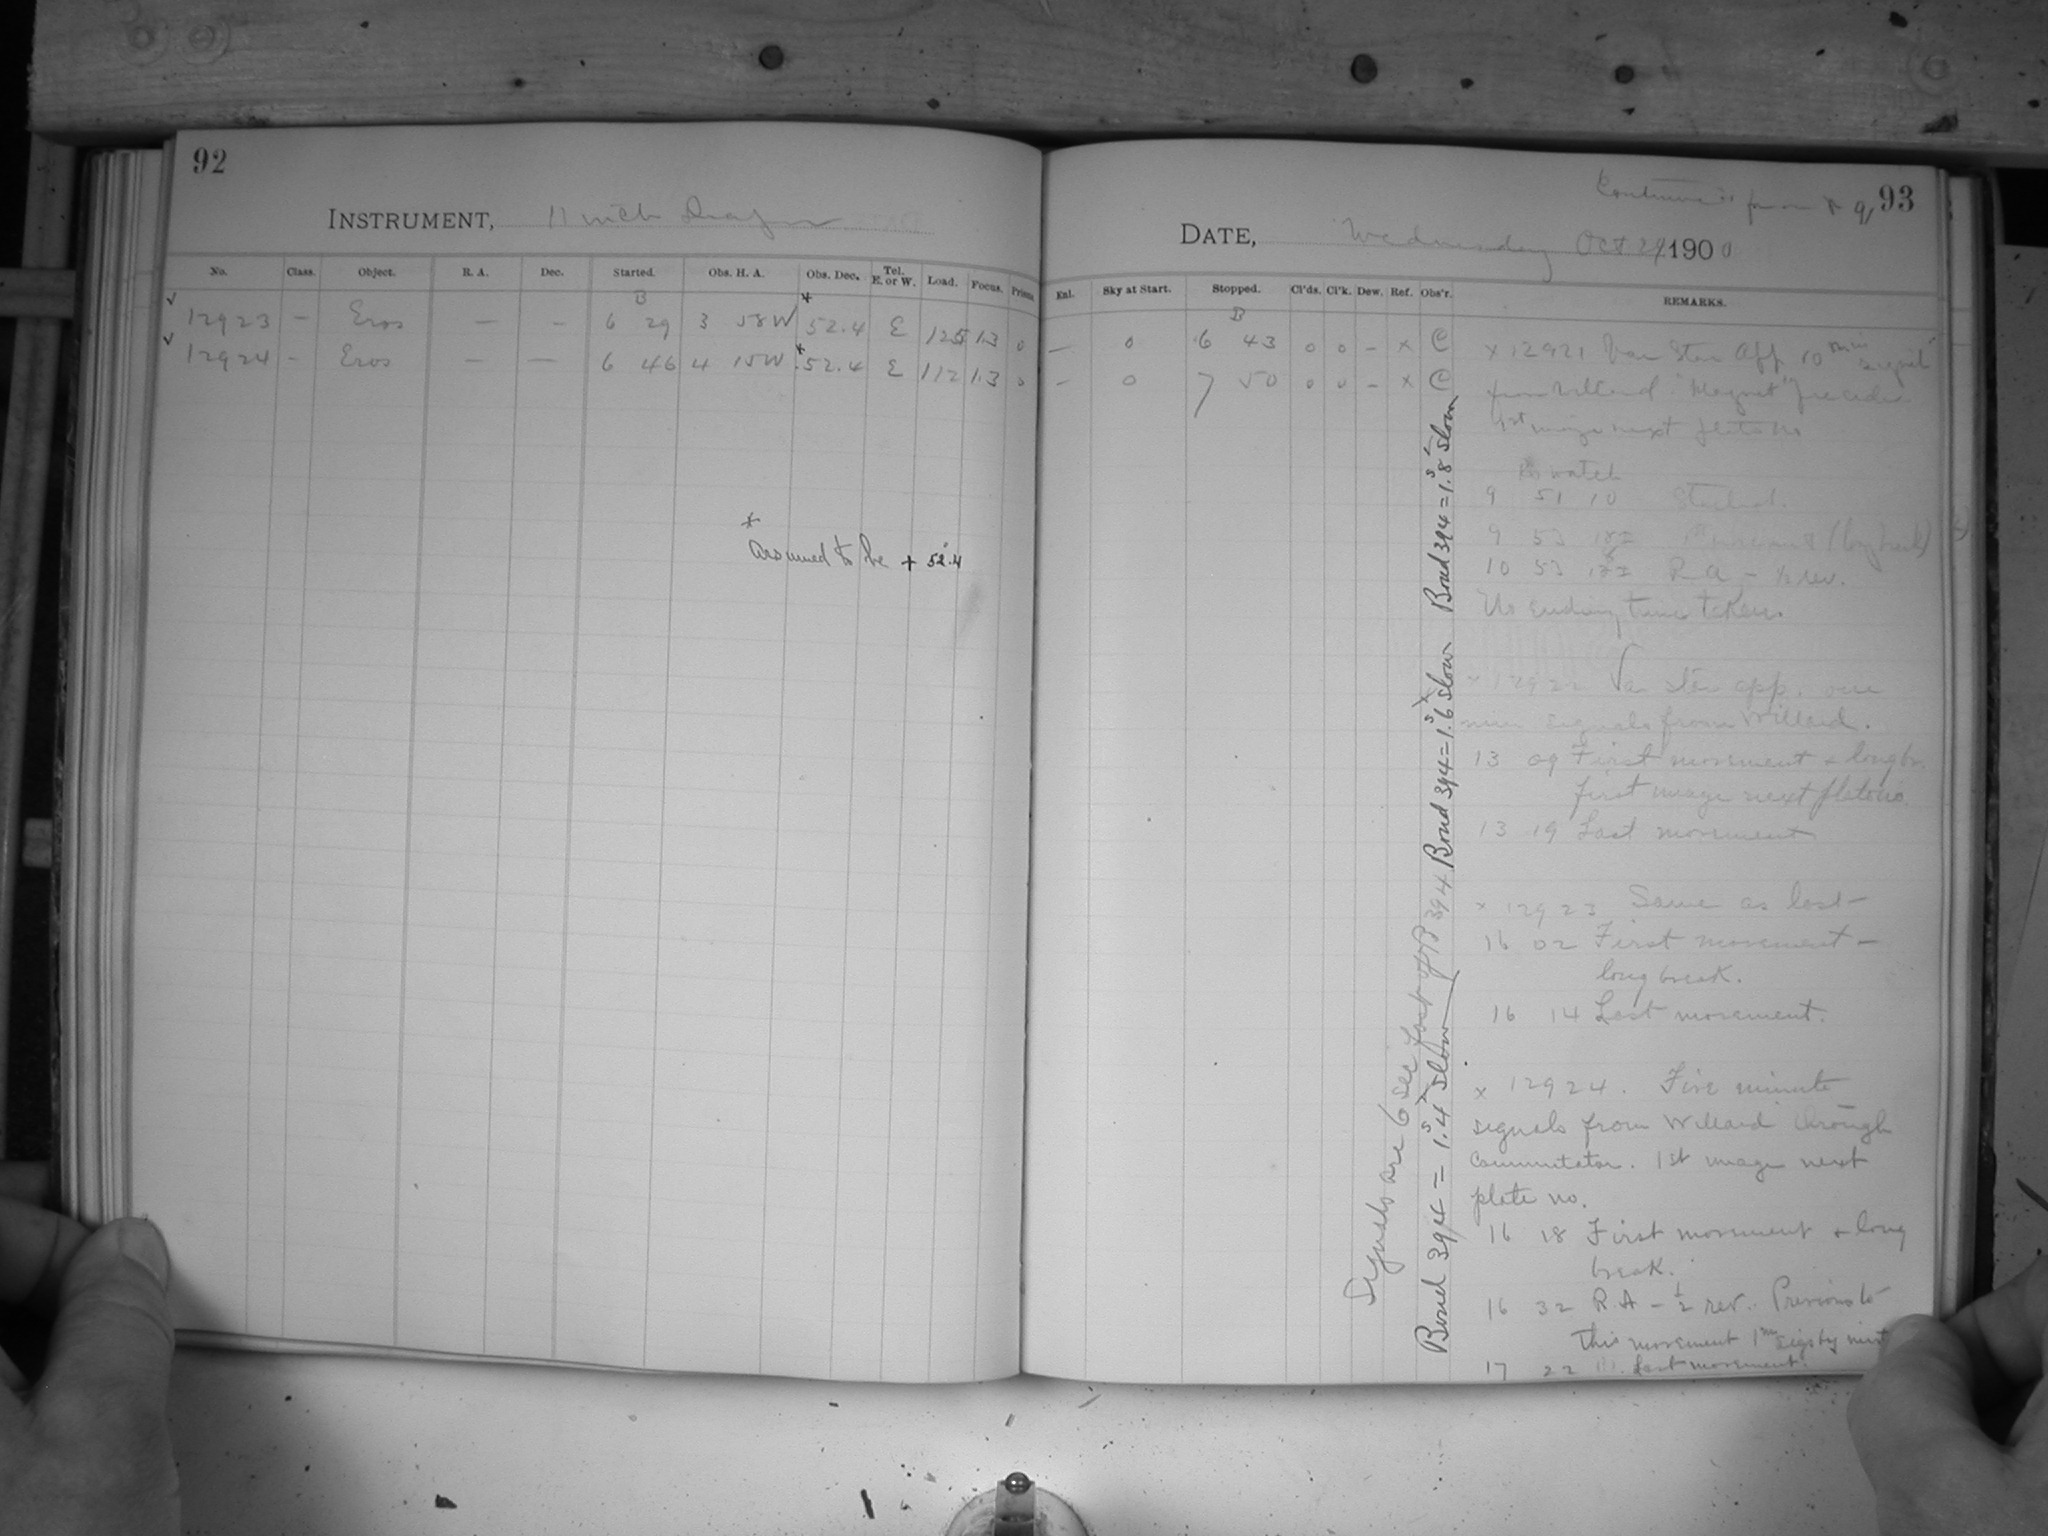 92
INSTRUMENT, 11 inch Draper
No. Class. Object. R. A. Dec. Started. Obs. H. A. Obs. Dec. Tel. E. or W. Load. Focus. Prism.
B
√ 12923 – Eros — – 6 29 3 58W * 52.4 E 125 13 0
√ 12924 – Eros — — 6 46 4 15W * 52.4 E 112 13 0
*
assumed to be + 52.4
93
DATE, Wednesday Oct 24 1900
Enl. Sky at Start. Stopped. Cl'ds. Cl'k. Dew. Ref. Obs'r. REMARKS.
B
— 0 6 43 0 0 – x C
– 0 7 50 0 0 – x C
x 12921 Van Ster App 10 min signal
from Willard "Magnet" precedes
1st image next plate no
watch
9 51 10 Started.
9 53
10 53 R A – ½ rev.
No ending time taken.
x 12922 Van Ster app. one
min signals from Willard.
13 09 First movement + long br.
first image next plate no.
13 19 Last movement
x 12923 Same as last –
16 02 First movement –
long break.
16 14 Last movement.
x 12924. Five minute
signals from Willard through
Commutator. 1st image next
plate no.
16 18 First movement + long
break.
16 32 R.A – ½ rev. Previous to
this movement 1m sigs by
17 22 Last movement.
Signals are 6 sec fast of B 394
Bond 394 = 1.4s slow
Bond 394 = 1.6s slow
Bond 394 = 1.8s slow